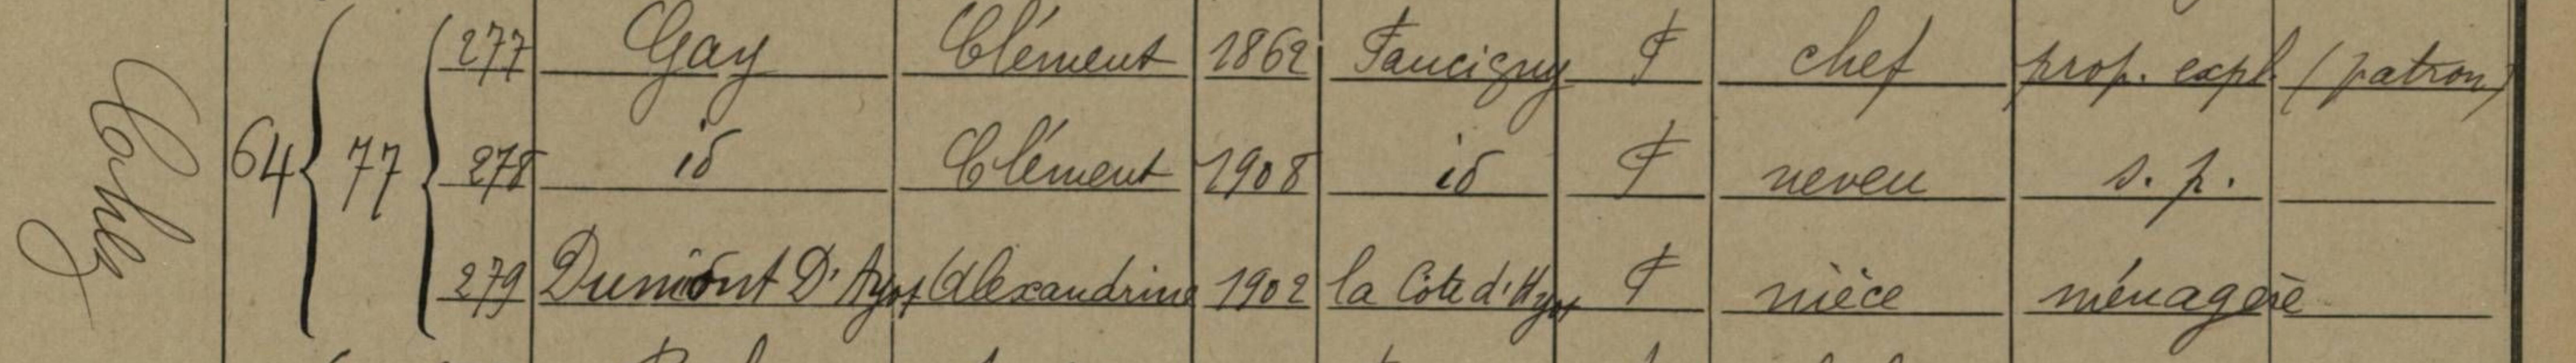 277 Gay Clément 1862 Faucigny F chef prop. expl. (patron)
64 77 278 id Clément 1908 id F neveu s. p.
279 Dumont D'Ayot Alexandrine 1902 la Côte d'Hyot F nièce ménagère